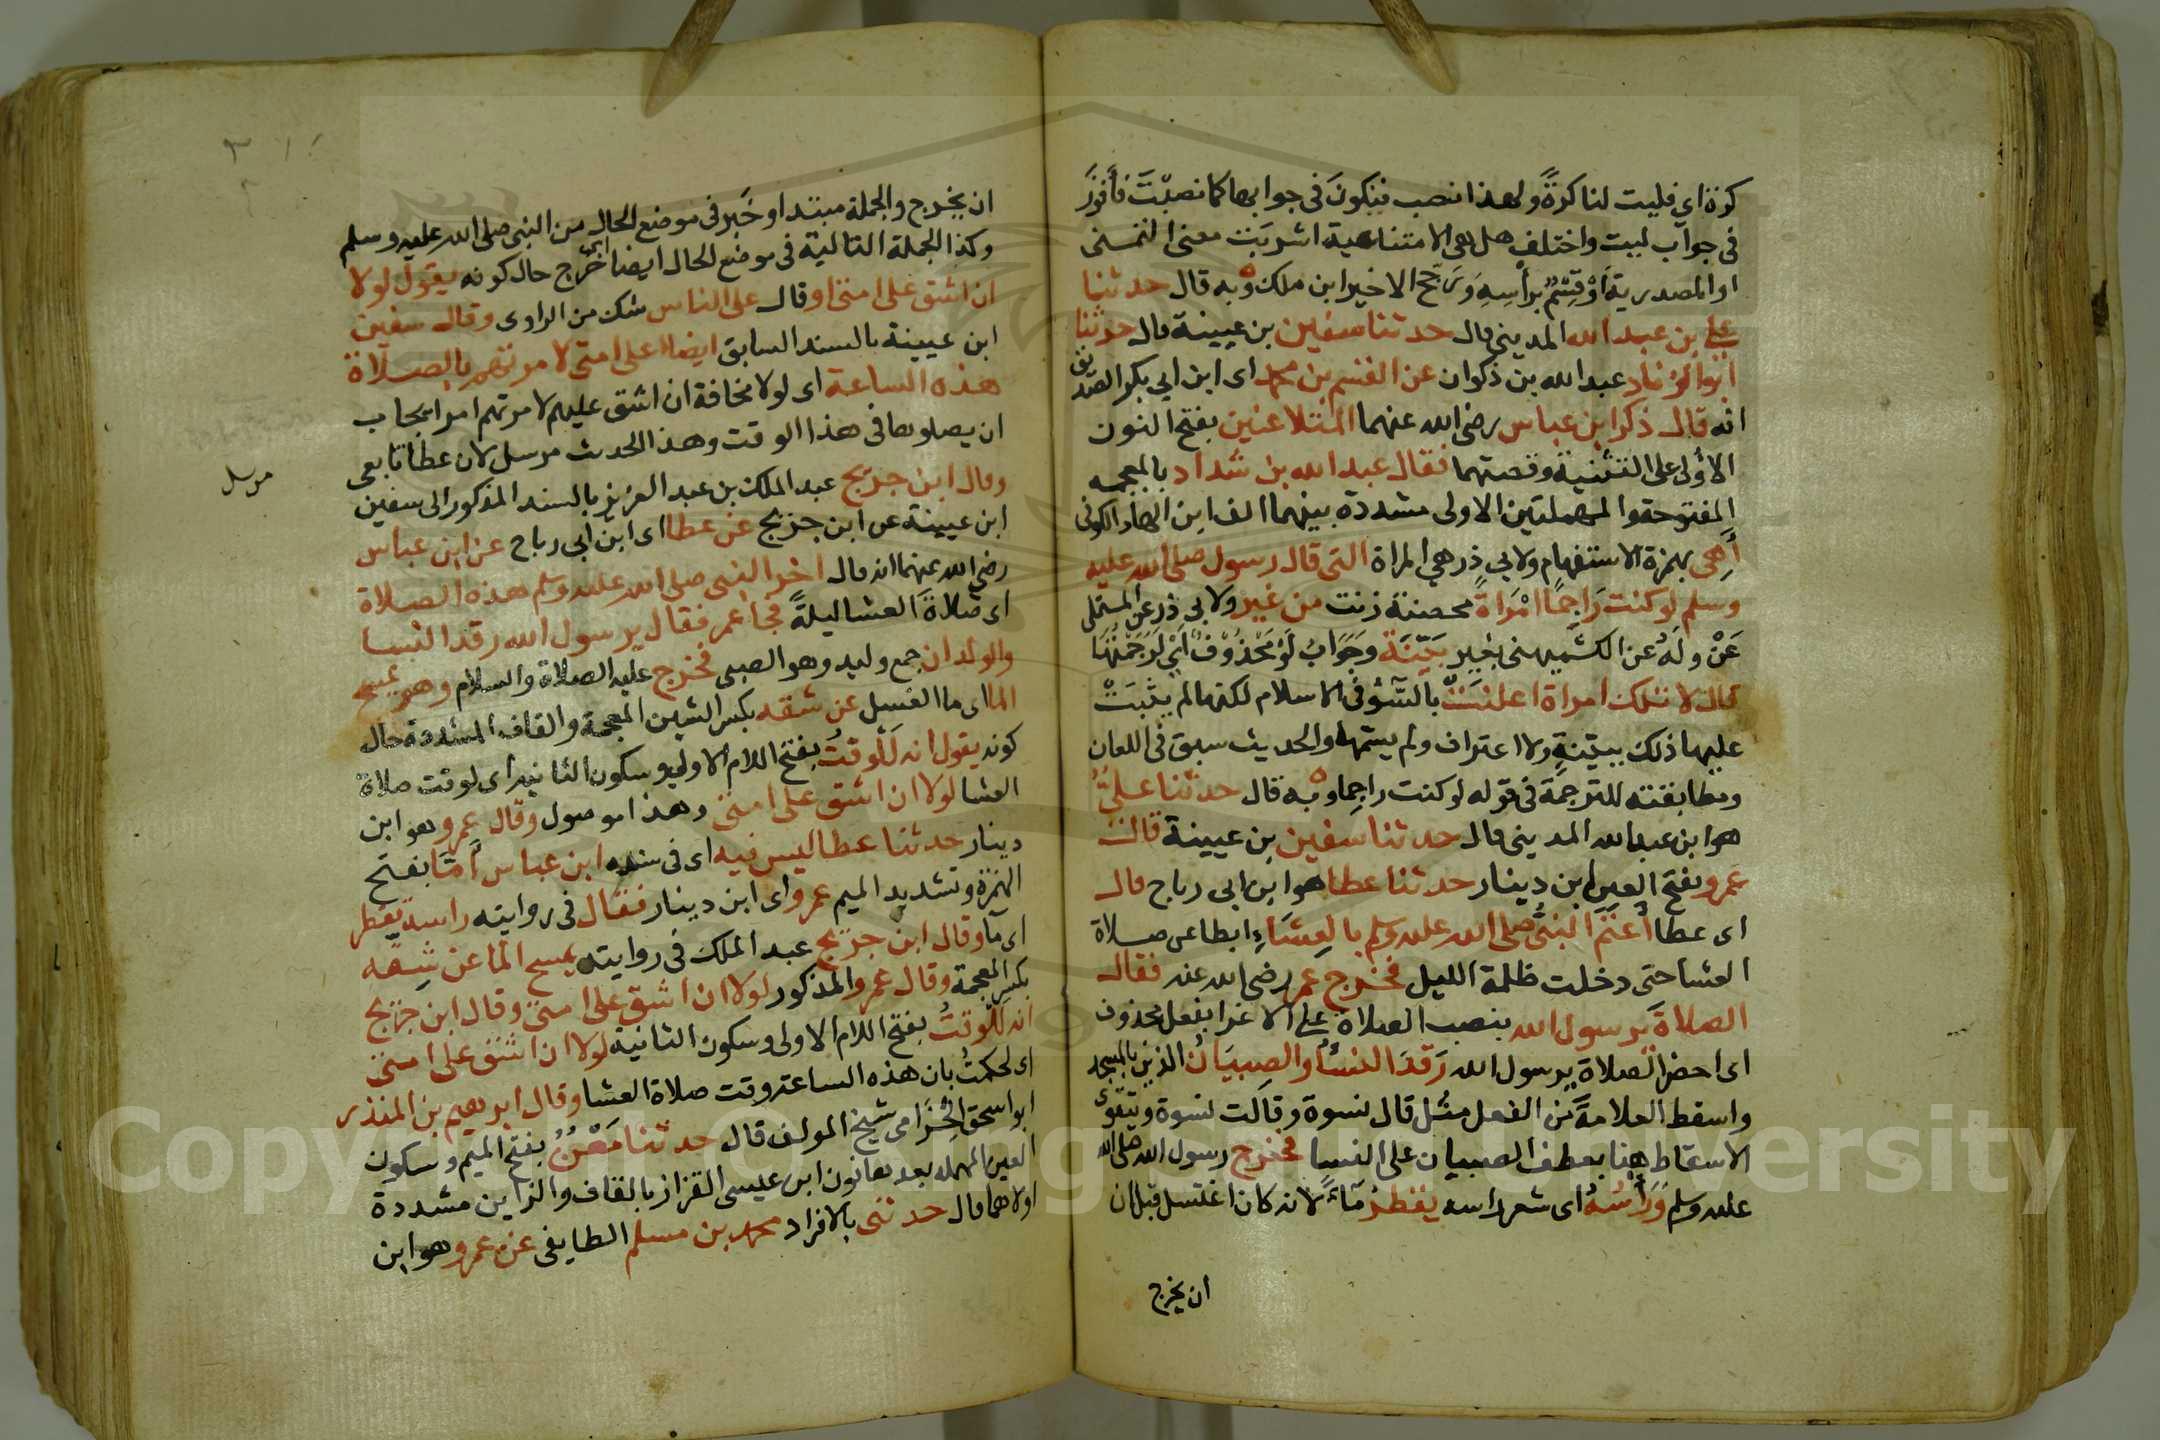 كرة اي فليت لنا كرةً ولهذا نصب فنكونَ في جوابها كما نصبْتَ فأفوزَ
في جواب ليت واختلف هل هي الامتناعية اشربَت معنى التمنى
او المصدرية اوْ قِسْمٌ برأسِهِ وَرَجّح الاخير ابن ملك وبه قال حدثنا
علي بن عبد الله المديني قال حدثنا سفين بن عيينة قال حدثنا
ابو الزناد عبد الله بن ذكوان عن القسم بن محمد اى ابن ابي بكر الصديق
انه قال ذكر ابن عباس رضى الله عنهما المتلاعنين بفتح النون
الاولى على التثنية وقصتهما فقال عبد الله بن شداد بالمعجمه
المفتوحة والمهملتين الاولى مشددة بينهما الف ابن الهاد الكوفى
أَهِىَ بهمزة الاستفهام ولابي ذر هي المراة التى قال رسول صلى الله عليه
وسلم لو كنت رَاجِمًا امْرَاةً محصنة زنت من غير ولابي ذر عن المستملى
عَنْ ولَهُ عن الكشميهنى بغير بَيِّنَة وجَوَابُ لَوْ مَحْذُوْفٌ اَيْ لَرَجَمْتُهَا
قال لا تلك امراة اعلنَتْ بالسُّوْ في الاسلام لكنها لم يثبَتْ
عليها ذلك ببيّنةٍ ولا اعتراف ولم يسمّها والحديث سبق في اللعان
ومطابقته للترجمَة في قوله لو كنت راجما وبه قال حدثنا عليٌّ
هو ابن عبد الله المديني قال حدثنا سفين بن عيينة قال
عمرو بفتح العين ابن دينار حدثنا عطا هو ابن ابى رباح قال
اى عطا أعتَمَ النبيُّ صلى الله عليه وسلم بالعِشَاءِ ابطا عن صلاة
العشا حتى دخلت ظلمة الليل فخرج عمر رضى الله عنه فقال
الصلاةَ يرسول الله بنصب الصلاة على الاغرا بفعل محذوف
اى احضر الصلاة يرسول الله رَقدَ النسَاُ والصِبيَانُ الذين بالمسجد
واسقط العلامة من الفعل مثل قال نسوة وقالت نسوة ويتقوى
الاسقاط هنا بعطف الصبيان على النسا فخرج رسول الله صلى الله
عليه وسلم وَرَأْسُهُ اى شعر راسه يقطرُ مَآءً لانه كان اغتسل قبل ان
ان يخرج
ان يخرج والجملة مبتدا وخَبر في موضع الحال من النبي صلى الله عليه وسلم
وكذا الجملة التالية في موضع الحال ايضا اى خرج حال كونه يقول لولا
ان اشق على امتى او قال على الناس شك من الراوى وقال سفين
ابن عيينة بالسند السابق ايضا على امتى لامرتهم بالصلاة
هذه الساعة اى لولا مخافة ان اشق عليهم لامرتهم امر ايجاب
ان يصلوها في هذا الوقت وهذا الحديث مرسل لان عطا تابعى
مرسل
وقال ابن جريج عبد الملك بن عبد العزيز بالسند المذكور الى سفين
ابن عيينة عن ابن جريج عن عطا اى ابن ابي رباح عن ابن عباس
رضي الله عنهما انه قال اخر النبى صلى الله عليه وسلم هذه الصلاة
اى صلاةَ العشا ليلةً فجا عمر فقال يرسول الله رقد النسا
والولدان جمع وليد وهو الصبى فخرج عليه الصلاة والسلام وهو يمسح
الما اى ما الغسل عن شقه بكسر الشين المعجمة والقاف المشددة حال
كونه يقول انه لَلْوقتُ بفتح اللام الاولى وسكون الثانيه اى لوقت صلاة
العشا لولا ان اشق على امتى وهذا موصول وقال عمرو هو ابن
دينار حدثنا عطا ليس فيه اى فى سنده ابن عباس أمّا بفتح
الهمزة وتشديد الميم عمرو اى ابن دينار فقال فى روايته راسه يقطر
اى مآ وقال ابن جريج عبد الملك في روايته يمسح الما عن شِقّه
بكسر المعجمة وقال عمرو المذكور لولا ان اشق على امتى وقال ابن جريج
انه لَلْوقتُ بفتح اللام الاولى وسكون الثانية لولا ان اشق على امتى
اى لحكمتُ بان هذه الساعة وقت صلاة العشا وقال ابرهيم بن المنذر
ابو اسحق الحِزَامى شيخ المولف قال حدثنا مَعْنٌ بفتح الميم وسكون
العين المهمله بعدها نون ابن عيسى القزاز بالقاف والزاين مشددة
اولاهما قال حدثنى بالافراد محمد بن مسلم الطايفى عن عمرو هو ابن
Copyright © King Saud University